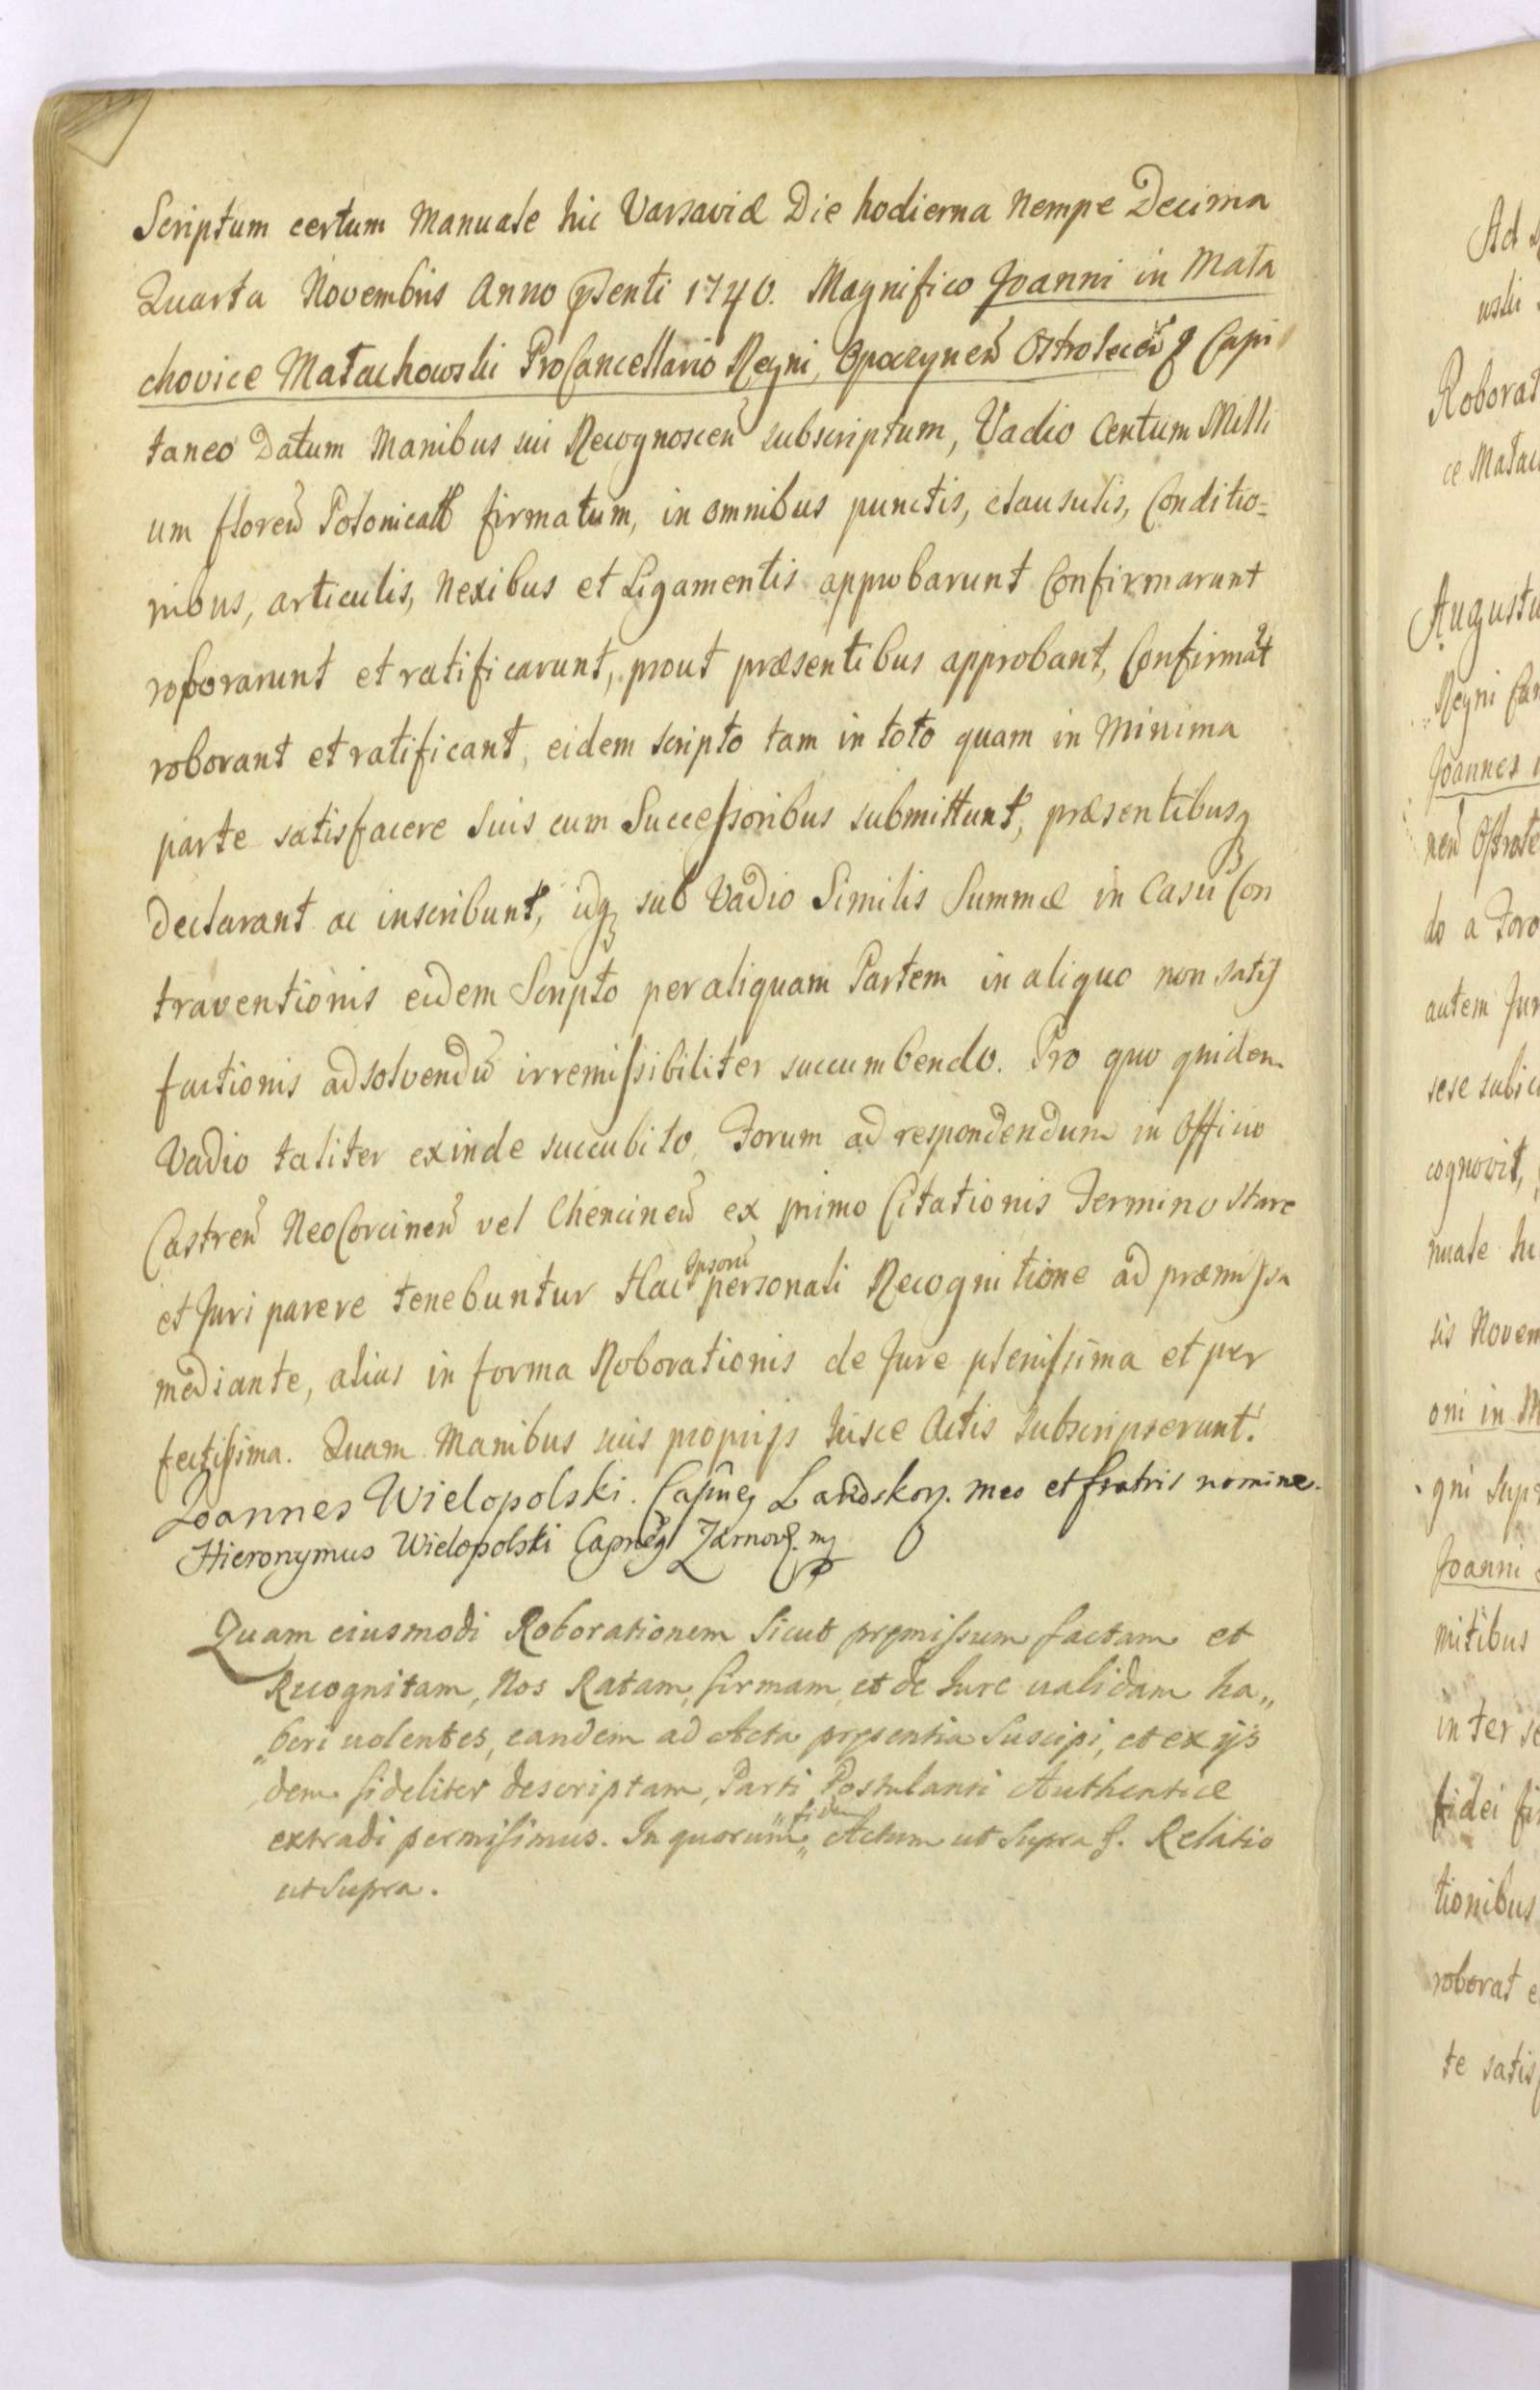 Scriptum certum Manuale hic Varsaviæ Die hodierna Nempe Decima
Quarta Novembris Anno p̃senti 1740. Magnifico Joanni in Mała
chovice Małachowski ProCancellario Regni, Opoczyneñ Ostroleceñ & Capi
taneo Datum Manibus sui Recognosceñ subscriptum, Vadio Centum Milli
um floreñ Polonicalt firmatum, in omnibus punctis, clausulis, Conditio=
nibus, articulis, Nexibus et Ligamentis approbarunt Confirmarunt
roborarunt et ratificarunt, prout præsentibus approbant, Confirmãt
roborant et ratificant, eidem scripto tam in toto quam in Minima
parte satisfacere suis cum Successoribus submittunt, præsentibusq
declarant ac inscribunt, idq sub Vadio Similis Summæ in Casu Con
traventionis eidem Scripto per aliquam Partem in aliquo non satis
factionis ad solvendũ irremissibiliter succumbendo. Pro quo quidem
Vadio taliter exinde succubito, Forum ad respondendum in Officio
Castreñ NeoCorcineñ vel Chencineñ ex primo Citationis Termino stare
et Juri parere tenebuntur Hac Ipsorũ personali Recognitione ad præmissa
mediante, alias in forma Roborationis de Jure plenissima et per
fectissima. Quam Manibus suis proprijs hisce Actis subscripserunt.
Joannes Wielopolski. Capñeg Landskor. meo et fratris nomine.
Hieronymus Wielopolski Capneg Zarnov. mp
Quam eiusmodi Roborationem Sicut præmissum factam et
Recognitam, Nos Ratam, firmam, et de Jure validam ha„
„beri volentes, eandem ad Acta præsentia Suscipi, et ex ijs
dem fideliter descriptam, Parti Postulanti Authentice
extradi permisimus. In quorum „fidem„ Actum ut Supra f. Relatio
ut Supra.
Ad
Roborat
Augustu
Regni Can
Joannes
do a Foro
autem Jur
sese subic
cognovit,
sis Novem
oni in M
gni Sup
Joanni
mitibus
inter se
fidei fi
tionibus
roborat e
te satis